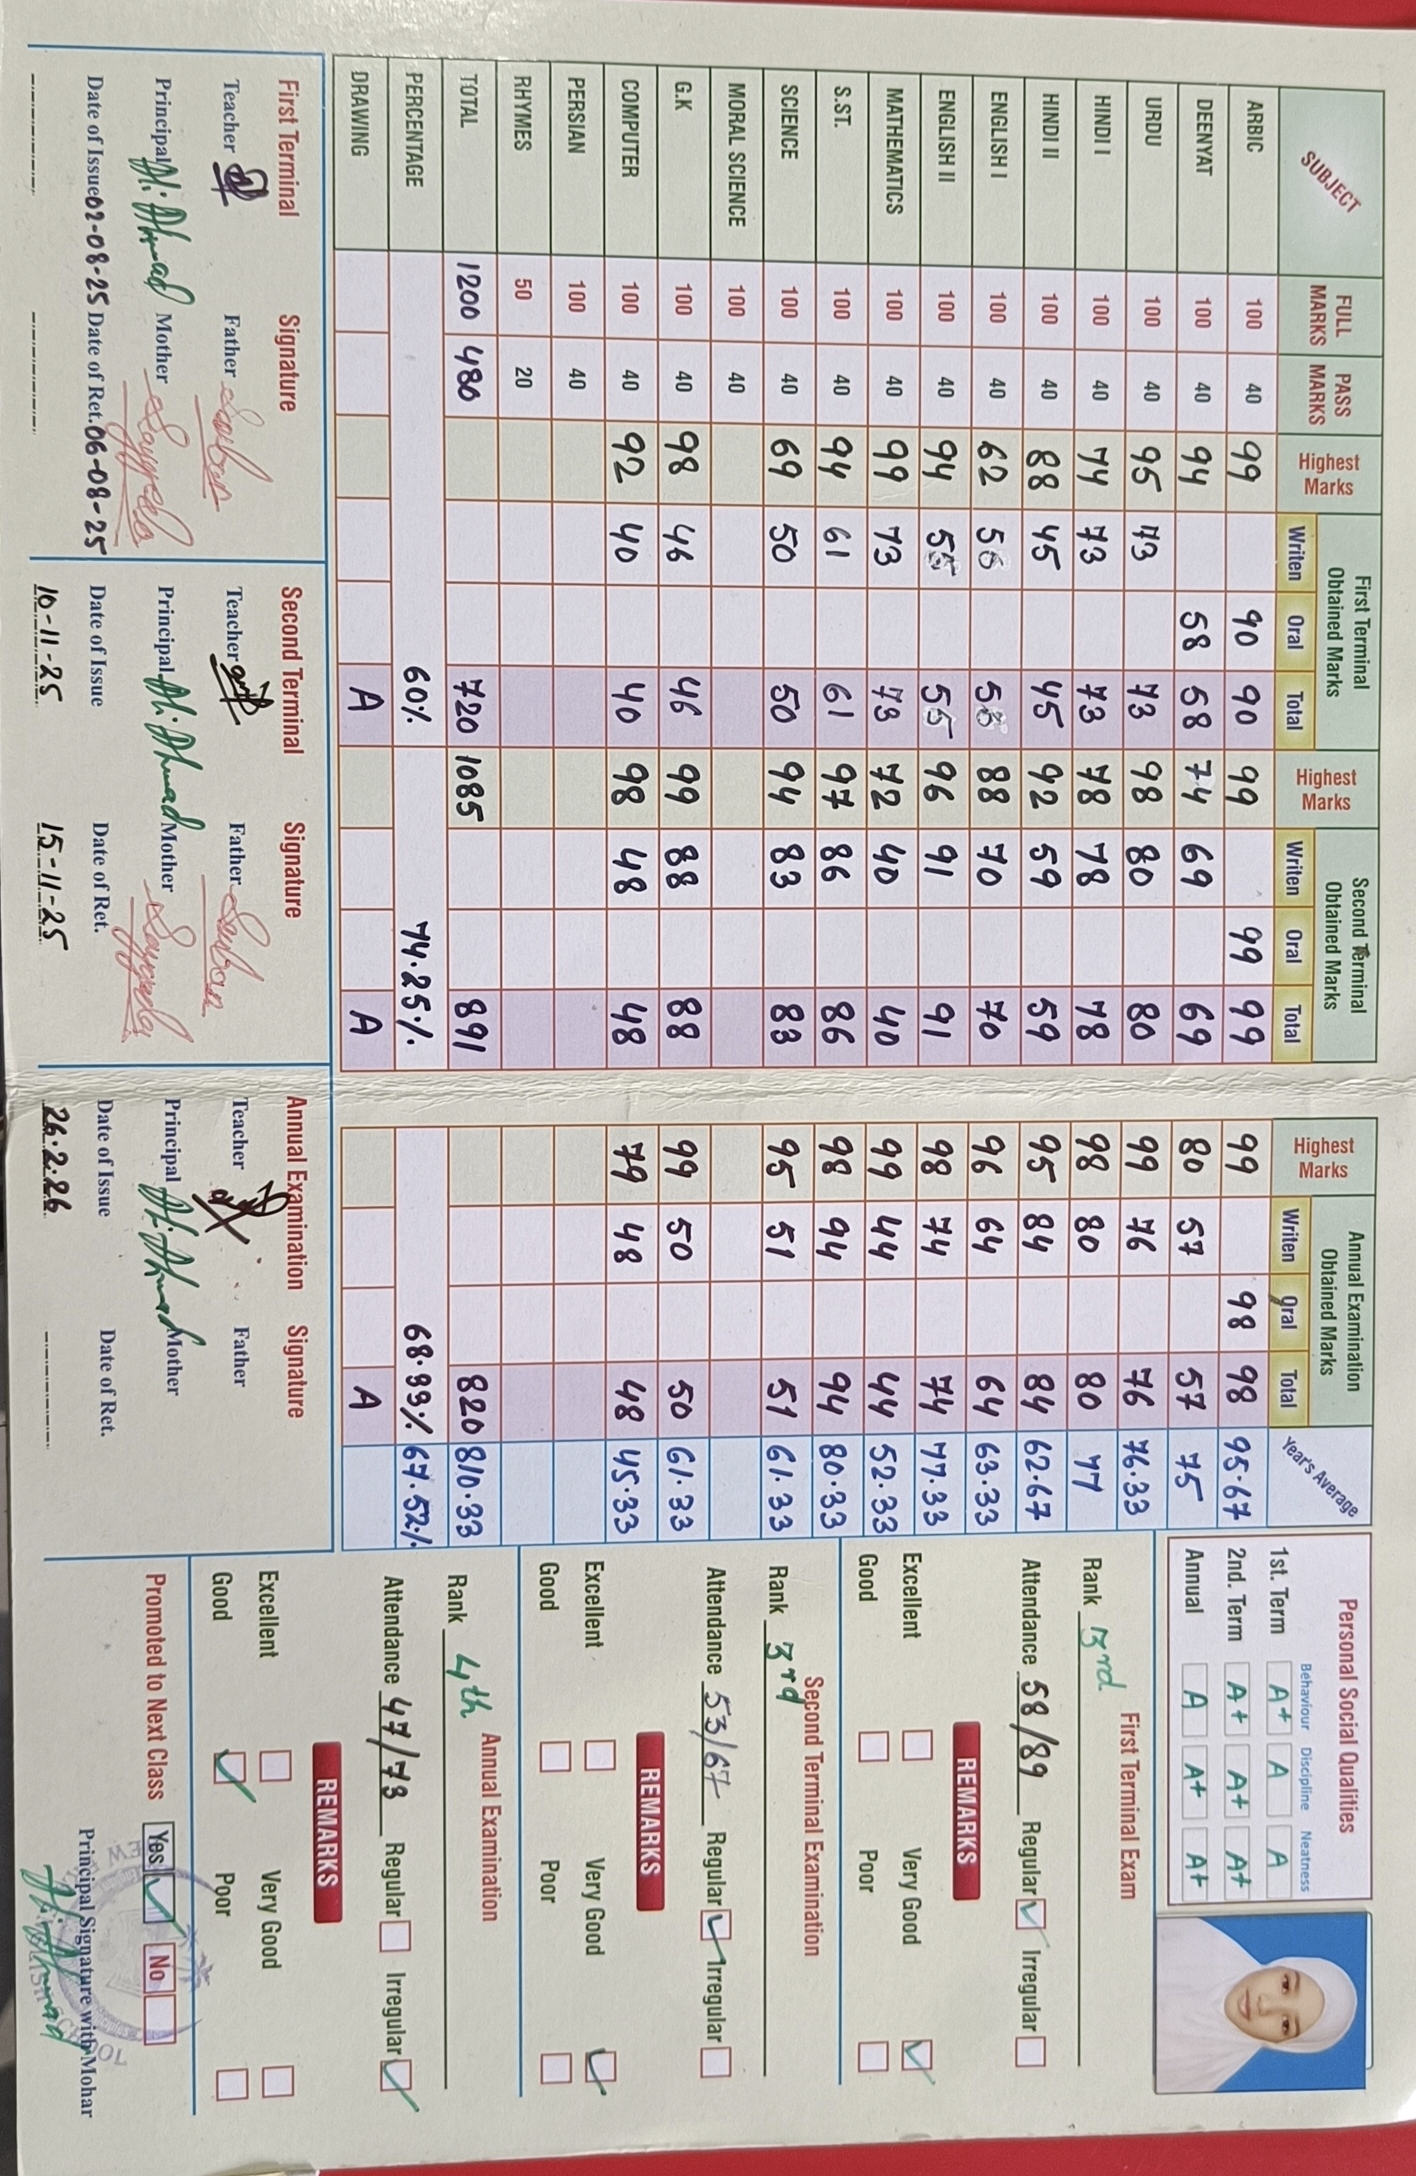 SUBJECT FULL MARKS PASS MARKS Highest Marks First Terminal Obtained Marks Writen Oral Total Highest Marks Second Terminal Obtained Marks Writen Oral Total Highest Marks Annual Examination Obtained Marks Writen Oral Total Year's Average
ARBIC 100 40 99 90 90 99 99 99 99 98 98 95.67
DEENYAT 100 40 94 58 58 74 69 69 80 57 57 75
URDU 100 40 95 73 73 98 80 80 99 76 76 76.33
HINDI I 100 40 74 73 73 78 78 78 98 80 80 77
HINDI II 100 40 88 45 45 92 59 59 95 84 84 62.67
ENGLISH I 100 40 62 56 56 88 70 70 96 64 64 63.33
ENGLISH II 100 40 94 55 55 96 91 91 98 74 74 77.33
MATHEMATICS 100 40 99 73 73 72 40 40 99 44 44 52.33
S.ST. 100 40 94 61 61 97 86 86 98 94 94 80.33
SCIENCE 100 40 69 50 50 94 83 83 95 51 51 61.33
MORAL SCIENCE 100 40
G.K 100 40 98 46 46 99 88 88 99 50 50 61.33
COMPUTER 100 40 92 40 40 98 48 48 79 48 48 45.33
PERSIAN 100 40
RHYMES 50 20
TOTAL 1200 480 720 1085 891 820 810.33
PERCENTAGE 60% 74.25% 68.99% 67.52%
DRAWING A A A
First Terminal Signature
Teacher Father
Principal Mother
Date of Issue 02-08-25 Date of Ret. 06-08-25
Second Terminal Signature
Teacher Father
Principal Mother
Date of Issue Date of Ret.
10-11-25 15-11-25
Annual Examination Signature
Teacher Father
Principal Mother
Date of Issue Date of Ret.
26.2.26
Personal Social Qualities
Behaviour Discipline Neatness
1st. Term A+ A A
2nd. Term A+ A+ A+
Annual A A+ A+
First Terminal Exam
Rank 3rd
Attendance 58/89 Regular Irregular
REMARKS
Excellent Very Good
Good Poor
Second Terminal Examination
Rank 3rd
Attendance 53/67 Regular Irregular
REMARKS
Excellent Very Good
Good Poor
Annual Examination
Rank 4th
Attendance 47/73 Regular Irregular
REMARKS
Excellent Very Good
Good Poor
Promoted to Next Class Yes No
Principal Signature with Mohar